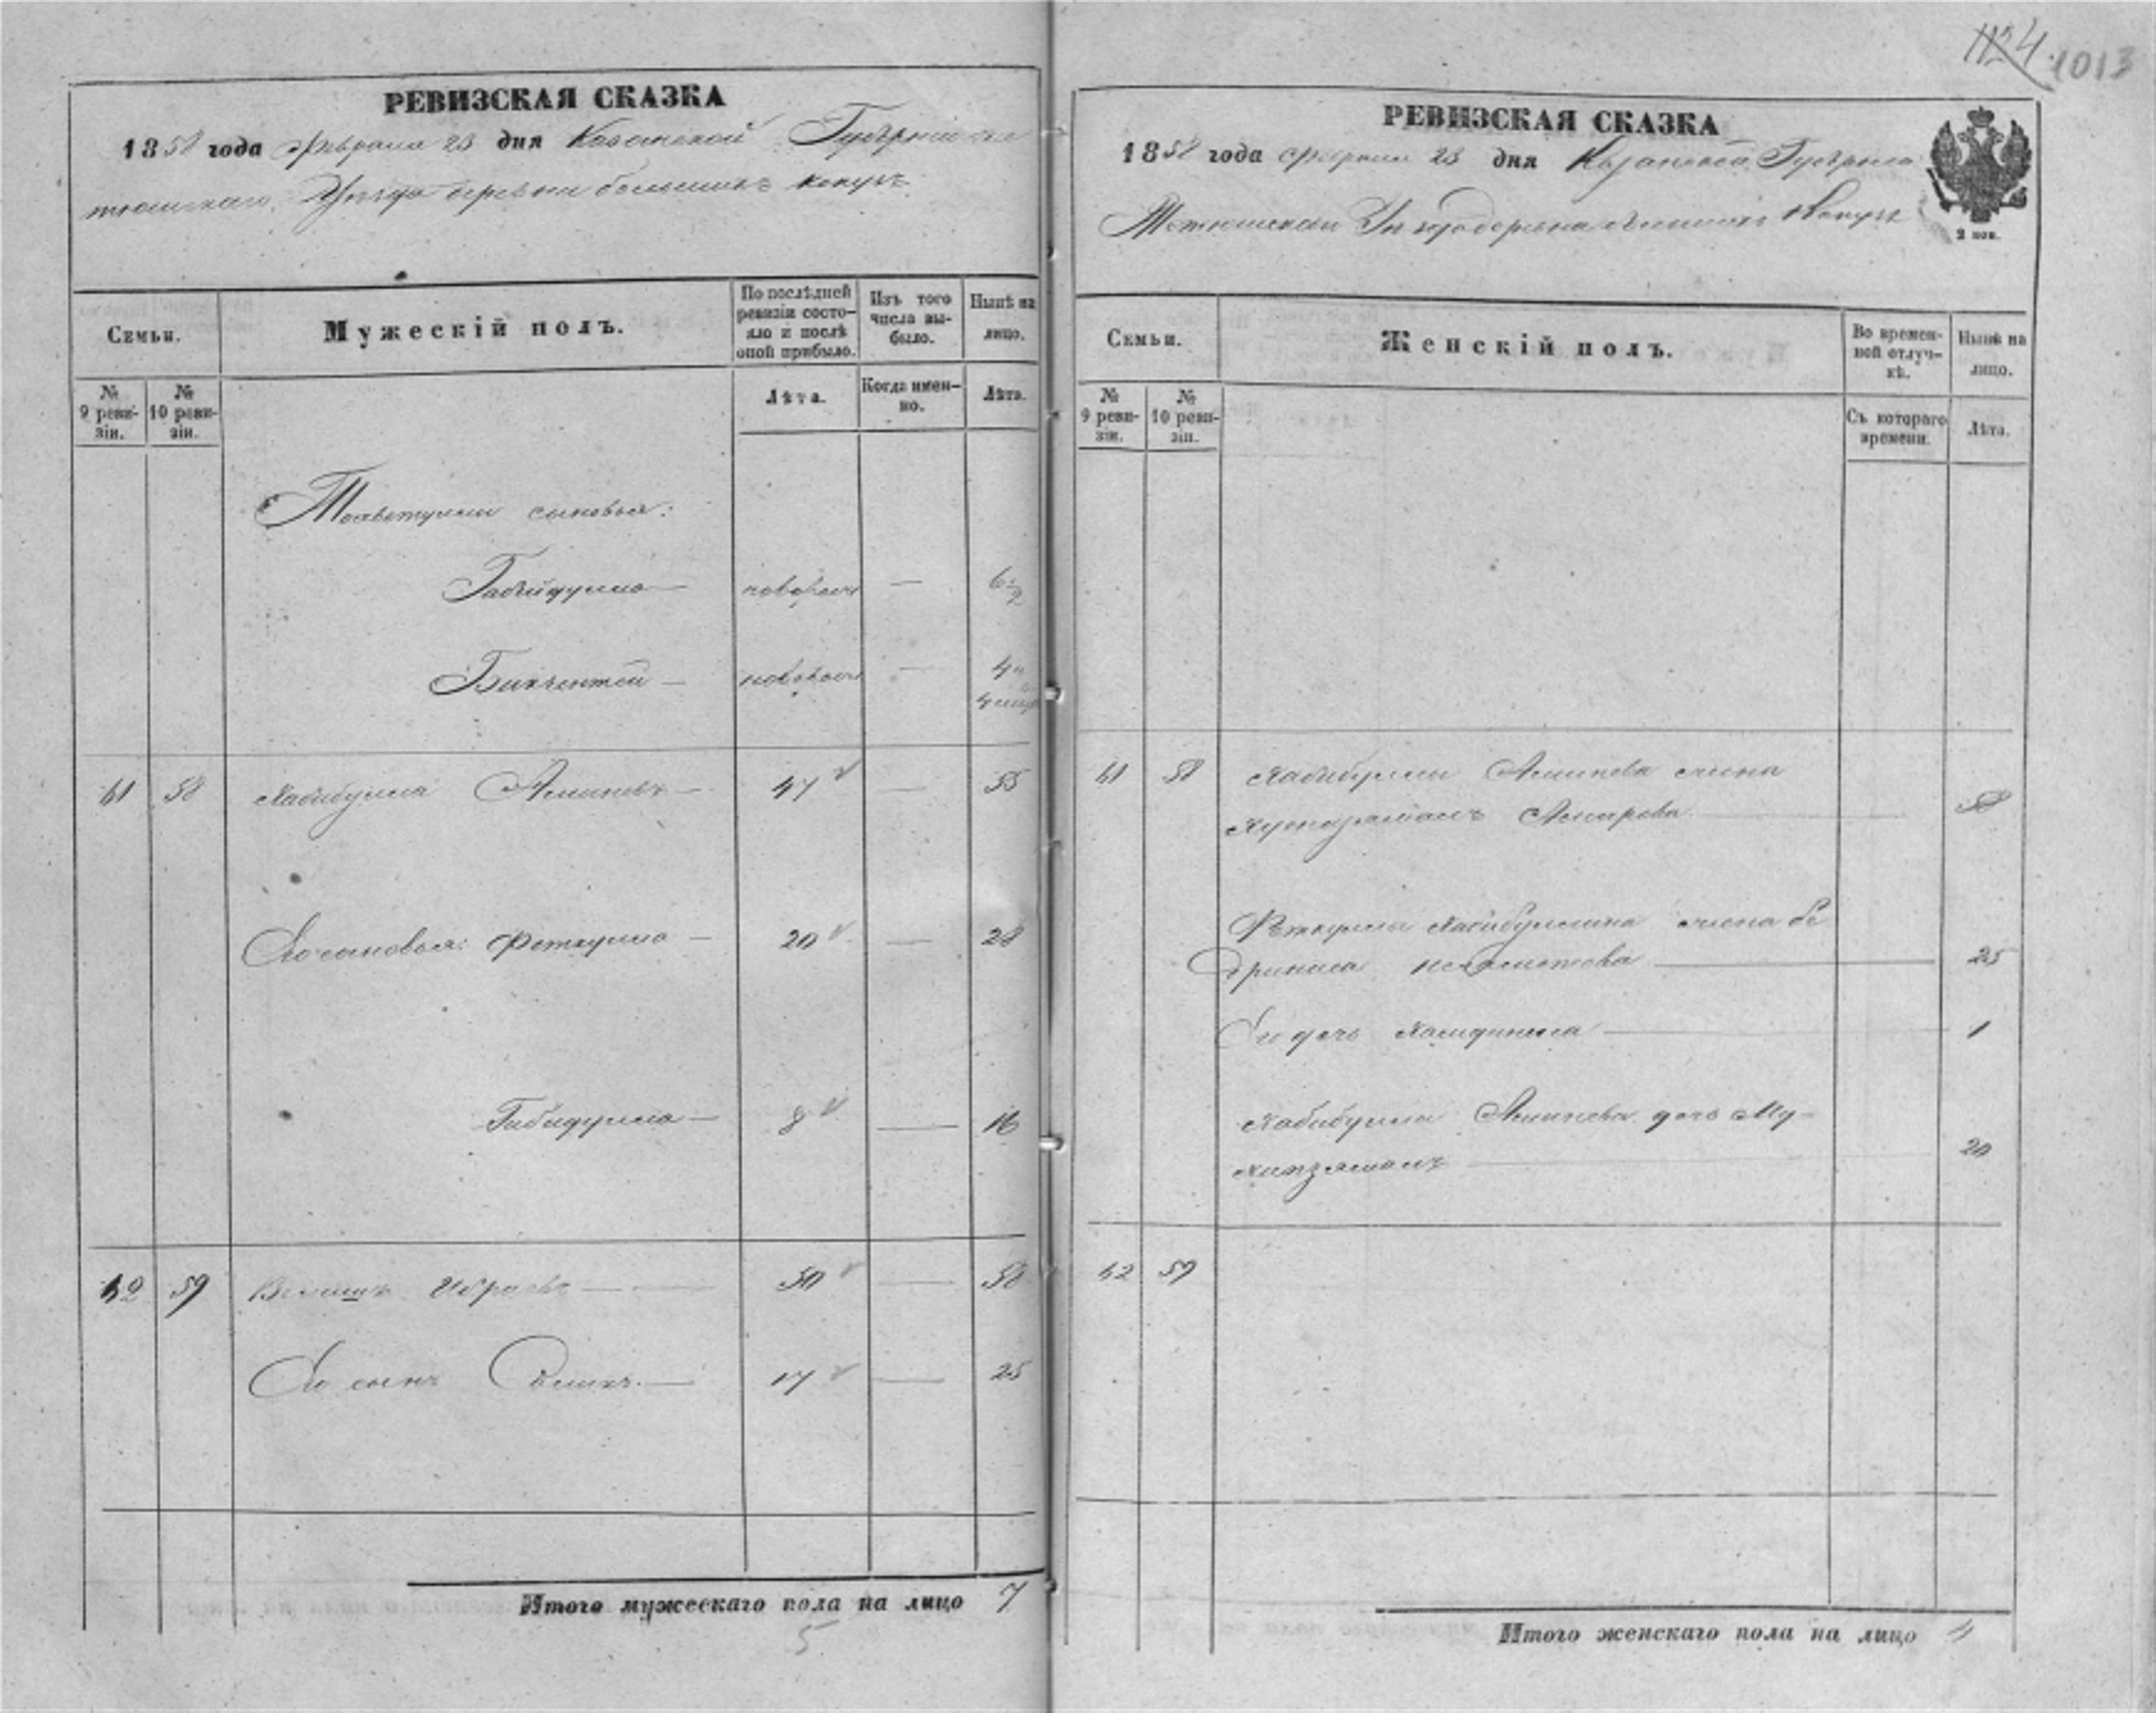 1124 1013
РЕВИЗСКАЯ СКАЗКА
1858 года Февраля 23 дня Казанской Губерніи Те
тюшскаго Уѣзда деревни большихъ
Семьи.
Мужескій полъ.
По послѣдней ревизіи состояло и послѣ оной прибыло.
Изъ того числа выбыло.
Нынѣ на лицо.
№ 9 ревизіи.
№ 10 ревизіи.
Лѣта.
Когда именно.
Лѣта.
сыновья:
Габидулла — новорож — 6 1/2
Бикчентей — новорож — 4
61 58 Хабибулла Аминевъ — 47 — 55
Его сыновья: Феткулла — 20 — 28
Гибидулла — 8 — 16
62 59 Ибраевъ — 50 — 58
Его сынъ — 17 — 25
Итого мужескаго пола на лицо 7
5
РЕВИЗСКАЯ СКАЗКА
1858 года Февраля 23 дня Казанской Губерніи
Тетюшскаго Уѣзда деревни
2 коп.
Семьи.
Женскій полъ.
Во временной отлучкѣ.
Нынѣ на лицо.
№ 9 ревизіи.
№ 10 ревизіи.
Съ котораго времени.
Лѣта.
61 58 Хабибуллы Аминева жена
Амирова — 58
Феткуллы Хабибуллина жена Бе
— 25
Его дочь — 1
Хабибуллы Аминева дочь Му-
— 20
62 59
Итого женскаго пола на лицо 4